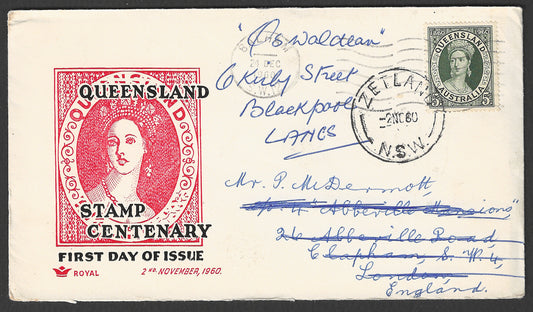 QUEENSLAND
STAMP
CENTENARY
FIRST DAY OF ISSUE
ROYAL
2ND. NOVEMBER, 1960.
24 DEC
S.W.
QUEENSLAND
AUSTRALIA
5D
ZETLAND
-2NO60
N.S.W.
"Oswaldean"
6 Kirby Street
Blackpool
LANCS
Mr. P. McDermott
"Abbeville Mansions"
26 Abbeville Road,
Clapham, S.W.4,
London
England.